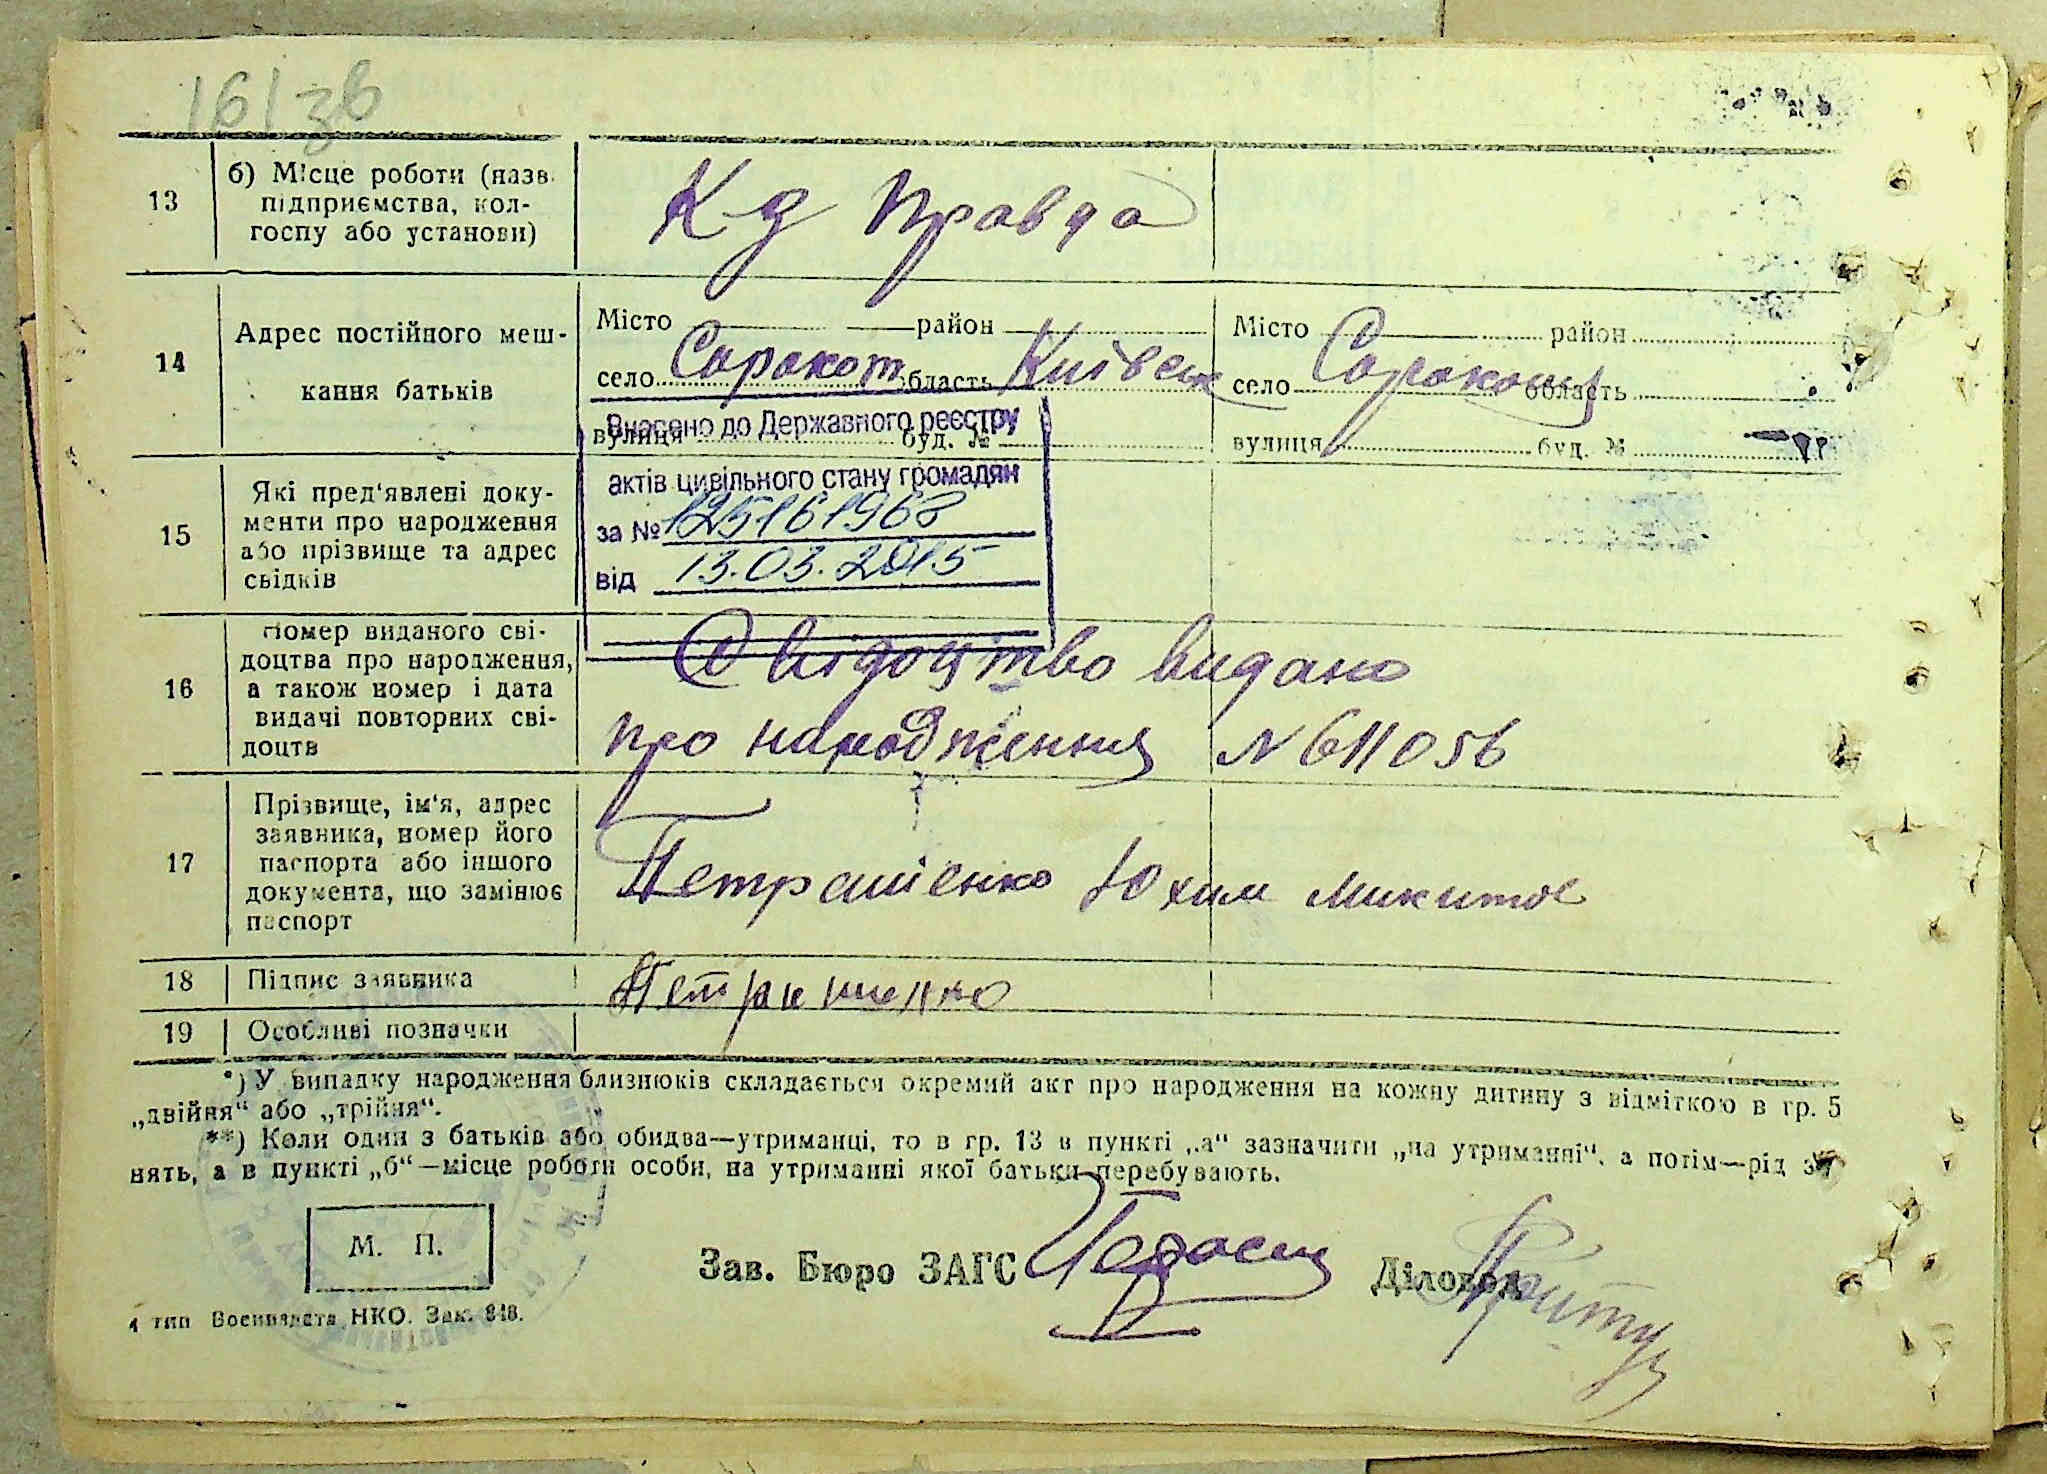 161зв
13
б) Місце роботи (назв.
підприємства, кол-
госпу або установи)
Кд Правда
14
Адрес постійного меш-
кання батьків
Місто район
село Сорокот область Київськ
вулиця буд. №
Місто район
село область
вулиця буд. №
Внесено до Державного реєстру
актів цивільного стану громадян
за № 125161968
від 13.03.2015
15
Які пред'явлені доку-
менти про народження
або прізвище та адрес
свідків
16
Номер виданого сві-
доцтва про народження,
а також номер і дата
видачі повторних сві-
доцтв
Свідоцтво видано
про народження N 611056
17
Прізвище, ім'я, адрес
заявника, номер його
паспорта або іншого
документа, що замінює
паспорт
Петрашенко Юхим Микитов
18
Підпис заявника
Петрашенко
19
Особливі позначки
*) У випадку народження близнюків складається окремий акт про народження на кожну дитину з відміткою в гр. 5
„двійня“ або „трійня“.
**) Коли один з батьків або обидва—утриманці, то в гр. 13 в пункті „а“ зазначити „на утриманні“, а потім—рід за
нять, а в пункті „б“—місце роботи особи, на утриманні якої батьки перебувають.
М. П.
Зав. Бюро ЗАГС
Діловод
4 тип Воениздата НКО. Зак. 848.